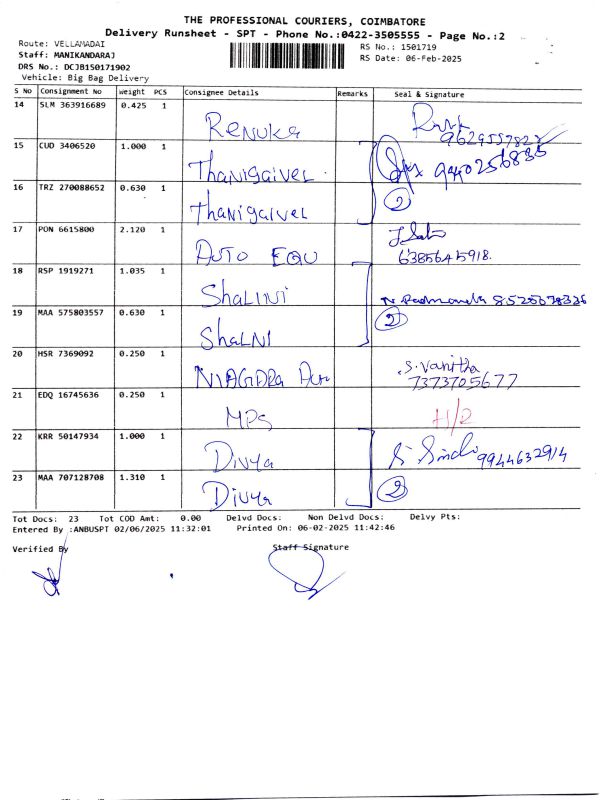 THE PROFESSIONAL COURIERS, COIMBATORE
Delivery Runsheet - SPT - Phone No.:0422-3505555 - Page No.:2
Route: VELLAMADAI
Staff: MANIKANDARAJ
DRS No.: DCJB150171902
Vehicle: Big Bag Delivery
RS No.: 1501719
RS Date: 06-Feb-2025
S No Consignment No Weight PCS Consignee Details Remarks Seal & Signature
14 SLM 363916689 0.425 1 Renuka
9629557822
15 CUD 3406520 1.000 1 Thanigaivel 9440256835
16 TRZ 270088652 0.630 1 Thanigaivel 2
17 PON 6615800 2.120 1 Auto Equ
6385645918.
18 RSP 1919271 1.035 1 Shalini
19 MAA 575803557 0.630 1 Shalni 2
20 HSR 7369092 0.250 1 NIAGARA S. Vanitha
7373705677
21 EDQ 16745636 0.250 1 MPS
22 KRR 50147934 1.000 1 Divya 9944632914
23 MAA 707128708 1.310 1 Divya 2
Tot Docs: 23 Tot COD Amt: 0.00 Delvd Docs: Non Delvd Docs: Delvy Pts:
Entered By :ANBUSPT 02/06/2025 11:32:01 Printed On: 06-02-2025 11:42:46
Verified By Staff Signature